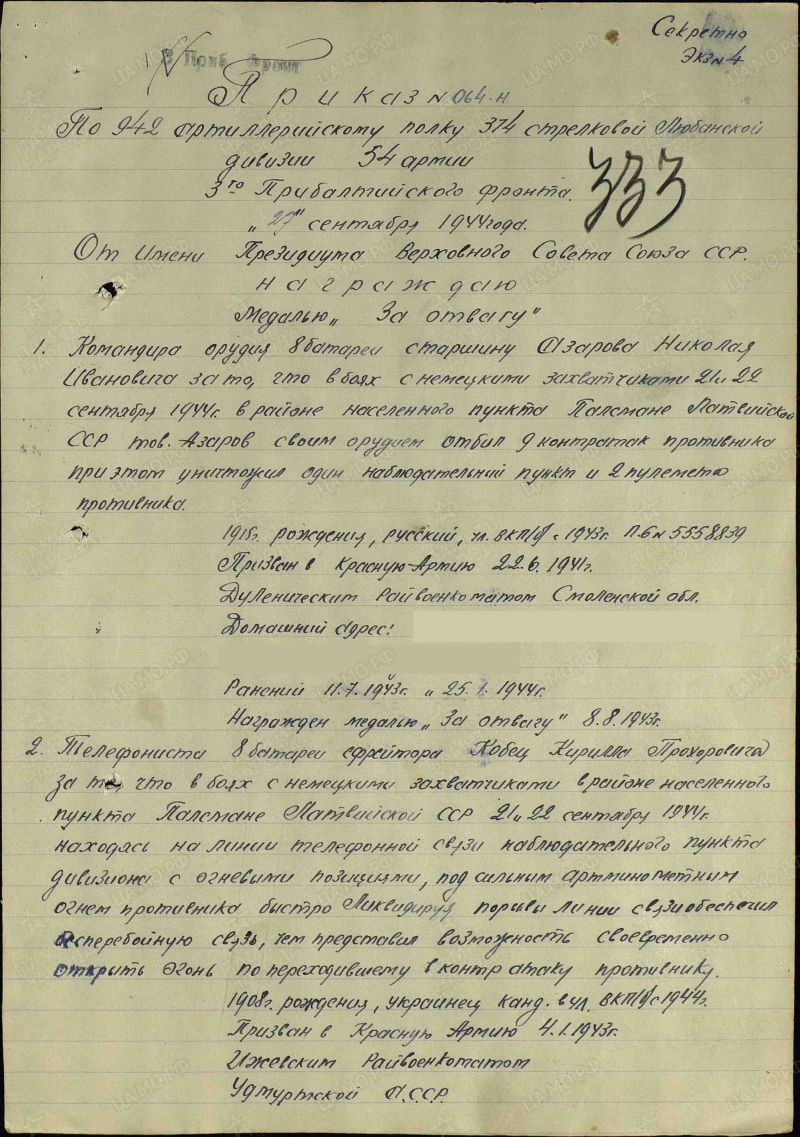 Секретно
Экз № 4
3 Приб. Фронт
Приказ № 064-н
По 942 артиллерийскому полку 374 стрелковой Любанской
дивизии 54 армии
3го Прибалтийского фронта.
333
„27" сентября 1944 года.
От Имени Президиума Верховного Совета Союза ССР.
награждаю
Медалью „За отвагу"
1. Командира орудия 8 батареи старшину Азарова Николая
Ивановича за то, что в боях с немецкими захватчиками 21 и 22
сентября 1944г. в районе населенного пункта Палсмане Латвийской
ССР тов. Азаров своим орудием отбил 9 контратак противника
при этом уничтожил один наблюдательный пункт и 2 пулемета
противника.
1918г. рождения, русский, чл. ВКП/б/ с 1943г. п.б № 5558839
Призван в Красную Армию 22.6.1941г.
Думеническим Райвоенкоматом Смоленской обл.
Домашний адрес:
Ранений 11.7.1943г. и 25.1.1944г.
Награжден медалью „За отвагу" 8.8.1943г.
2. Телефониста 8 батареи ефрейтора Кобец Кирилла Прохоровича
за то, что в боях с немецкими захватчиками в районе населенного
пункта Палсмане Латвийской ССР 21 и 22 сентября 1944г.
находясь на линии телефонной связи наблюдательного пункта
дивизиона с огневыми позициями, под сильным артминометным
огнем противника быстро ликвидируя порывы линии связи обеспечил
бесперебойную связь, чем представил возможность своевременно
открыть огонь по переходившему в контратаку противнику.
1908г. рождения, украинец канд. в чл. ВКП/б/ с 1944г.
Призван в Красную Армию 4.1.1943г.
Ижевским Райвоенкоматом
Удмуртской А.С.С.Р.